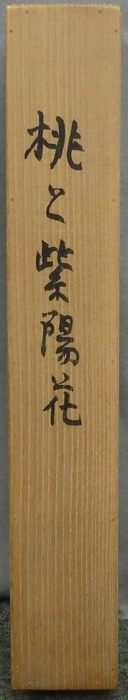 桃と紫陽花